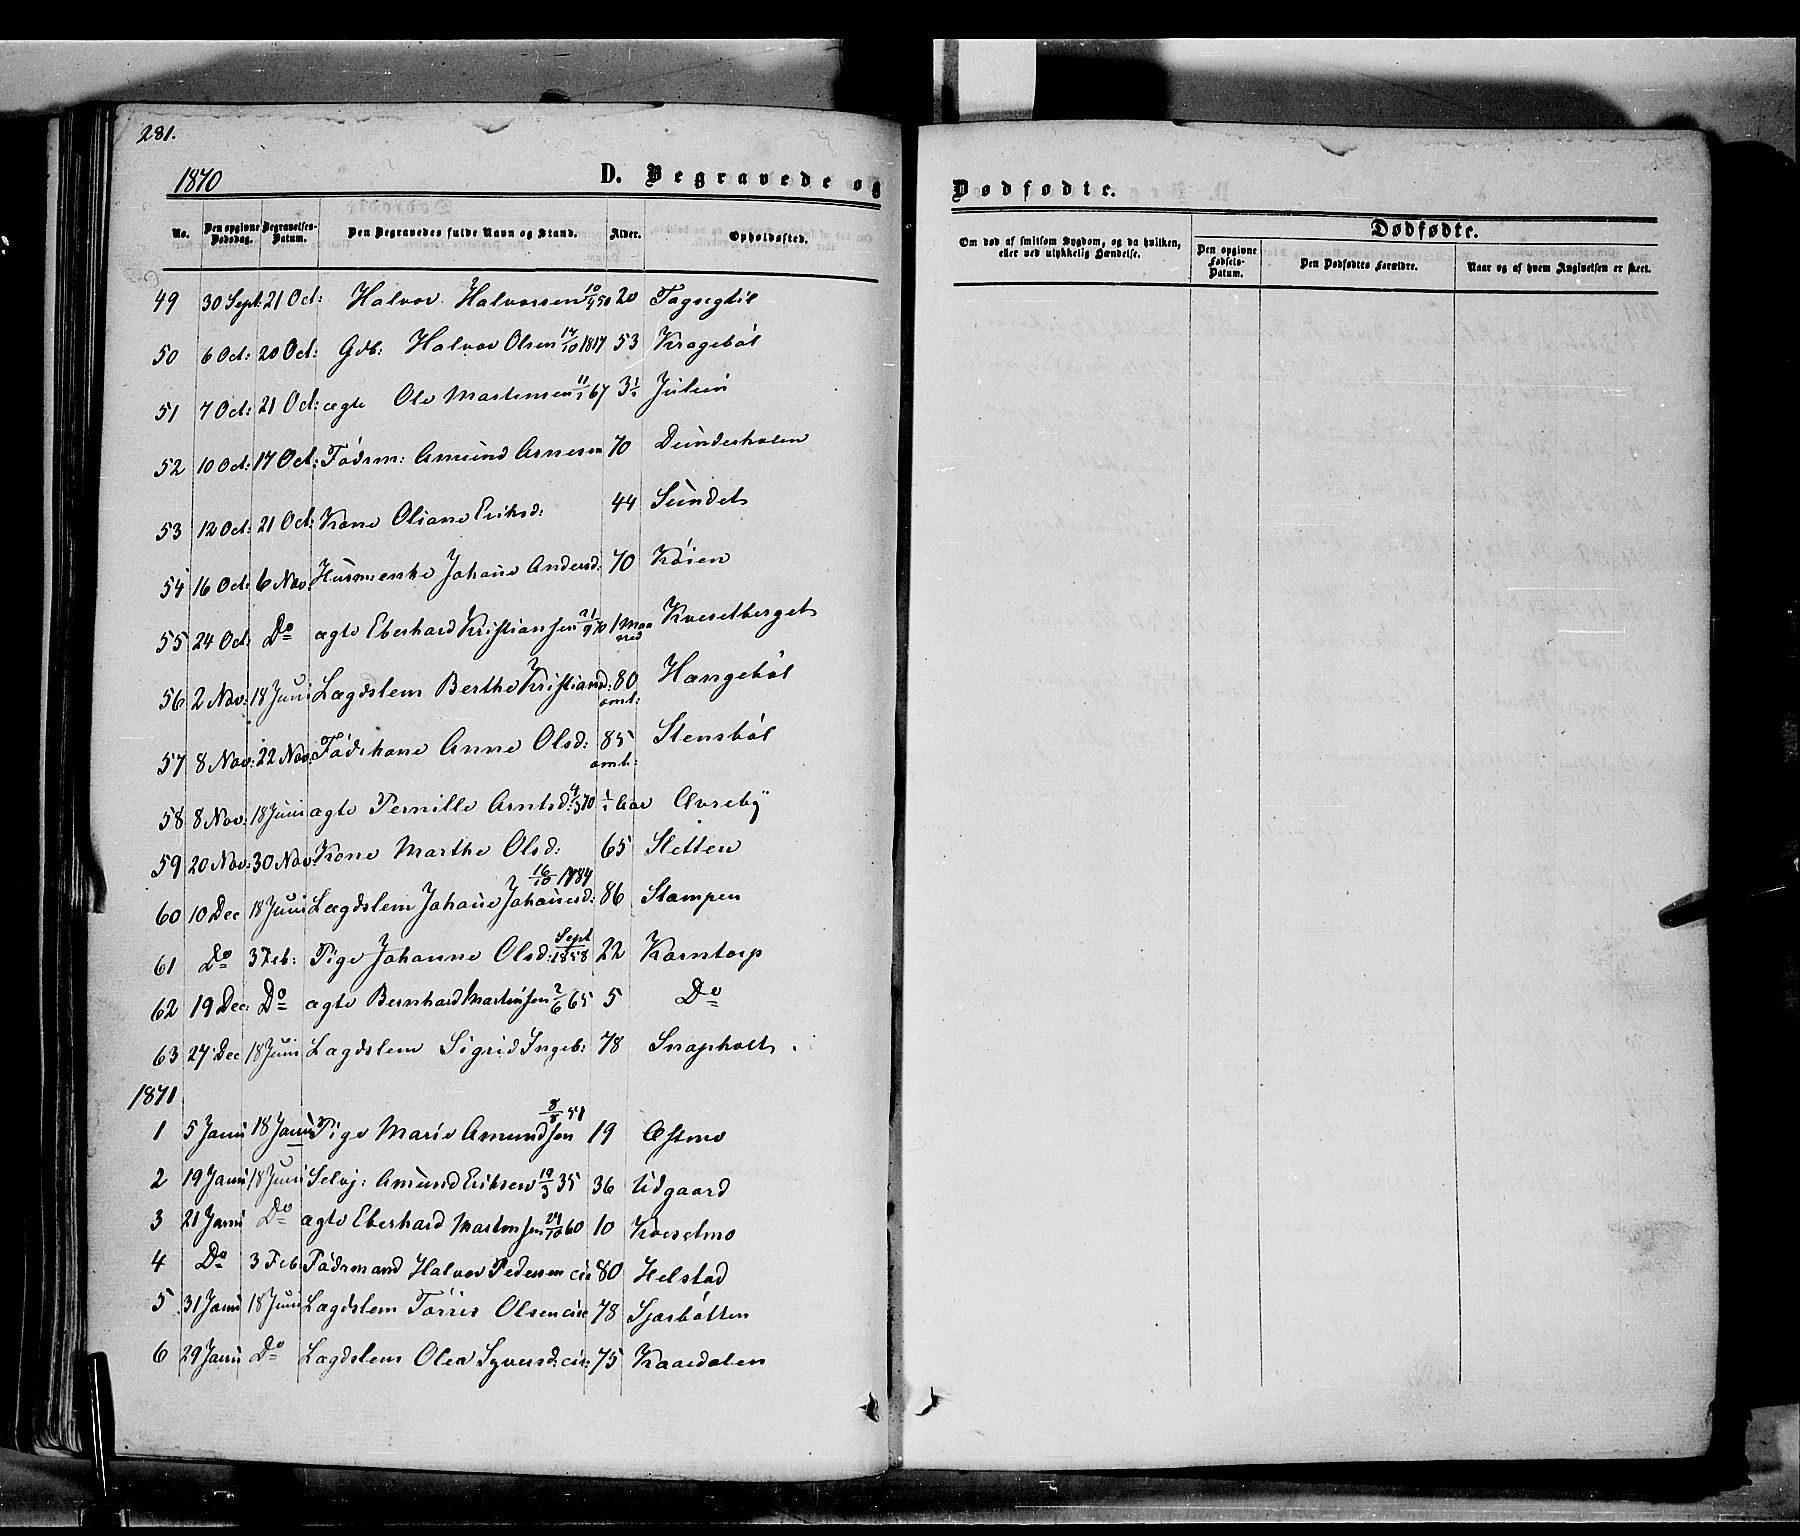 281.
1870
D. Begravede og
Dødfødte.
No. Den opgivne Dødsdag. Begravelses-Datum. Den Begravedes fulde Navn og Stand. Alder. Opholdssted.
Om død af smitsom Sygdom, og da hvilken, eller ved ulykkelig Hændelse. Dødfødte. Den opgivne Fødsels-Datum. Den Dødfødtes Forældre. Naar og af hvem Angivelsen er skeet.
49 30 Sept: 21 Oct: Halvor Halvorsen 10/9 50 20 Tagsegtil
50 6 Oct: 20 Oct: Gdb: Halvor Olsen 17/10 1817 53 Kragebøl
51 7 Oct: 21 Oct: ægte Ole Martinsen 11/1 67 3½ Julsin
52 10 Oct: 17 Oct: Födrm: Amund Arnesen 70 Dunderholen
53 12 Oct: 21 Oct: Kone Oliane Eriksd: 44 Sundet
54 16 Oct: 6 Nov: Husm:enke Johane Andersd: 70 Køien
55 24 Oct: Do ægte Eberhard Kristiansen 21/9 70 1 Maaned Kveselberget
56 2 Nov: 18 Juni Lægdslem Berthe Kristiansd: 80 omt: Hangebøl
57 8 Nov: 22 Nov: Födekone Anne Olsd: 85 omt: Stensbøl
58 8 Nov: 18 Juni ægte Pernille Arntsd: 4/5 70 ½ Aar Overbÿ
59 20 Nov: 30 Nov: Kone Marthe Olsd: 65 Sletten
60 10 Dec 18 Juni Lægdslem Johane Johannesd: 16/10 1784 86 Stampen
61 Do 3 Feb: Pige Johanne Olsd: Sept 1858 22 Korntorp
62 19 Dec: Do ægte Bernhard Martinsen 2/6 65 5 Do
63 27 Dec 18 Juni Lægdslem Sigrid Ingeb: 78 Snapholt
1871
1 5 Janu 18 Janu Pige Marie Amundsen 8/8 51 19 Østmo
2 19 Janu 18 Juni Selvj: Amund Eriksen 19/3 35 36 Udgaard
3 21 Janu Do ægte Eberhard Martinsen 24/10 60 10 Kveselmo
4 Do 3 Feb: Födrmand Halvor Pedersen cir 80 Helstad
5 31 Janu 18 Juni Lægdslem Törris Olsen circ 78 Sjørbötten
6 29 Janu Do Lægdslem Olea Syversd: cir: 75 Kaardalen